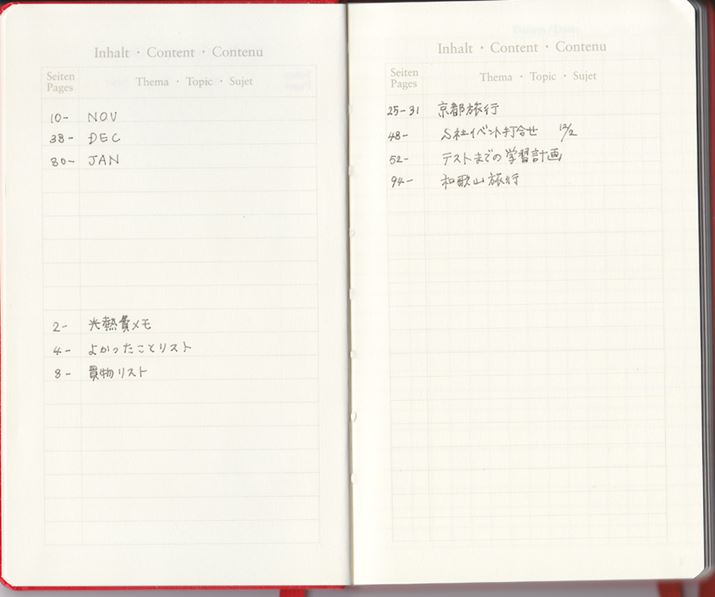 Inhalt · Content · Contenu
Seiten
Pages
Thema · Topic · Sujet
10- NOV
38- DEC
80- JAN
2- 光熱費メモ
4- よかったことリスト
8- 買物リスト
Inhalt · Content · Contenu
Seiten
Pages
Thema · Topic · Sujet
25-31 京都旅行
48- S社イベント打合せ 12/2
52- テストまでの学習計画
94- 和歌山旅行